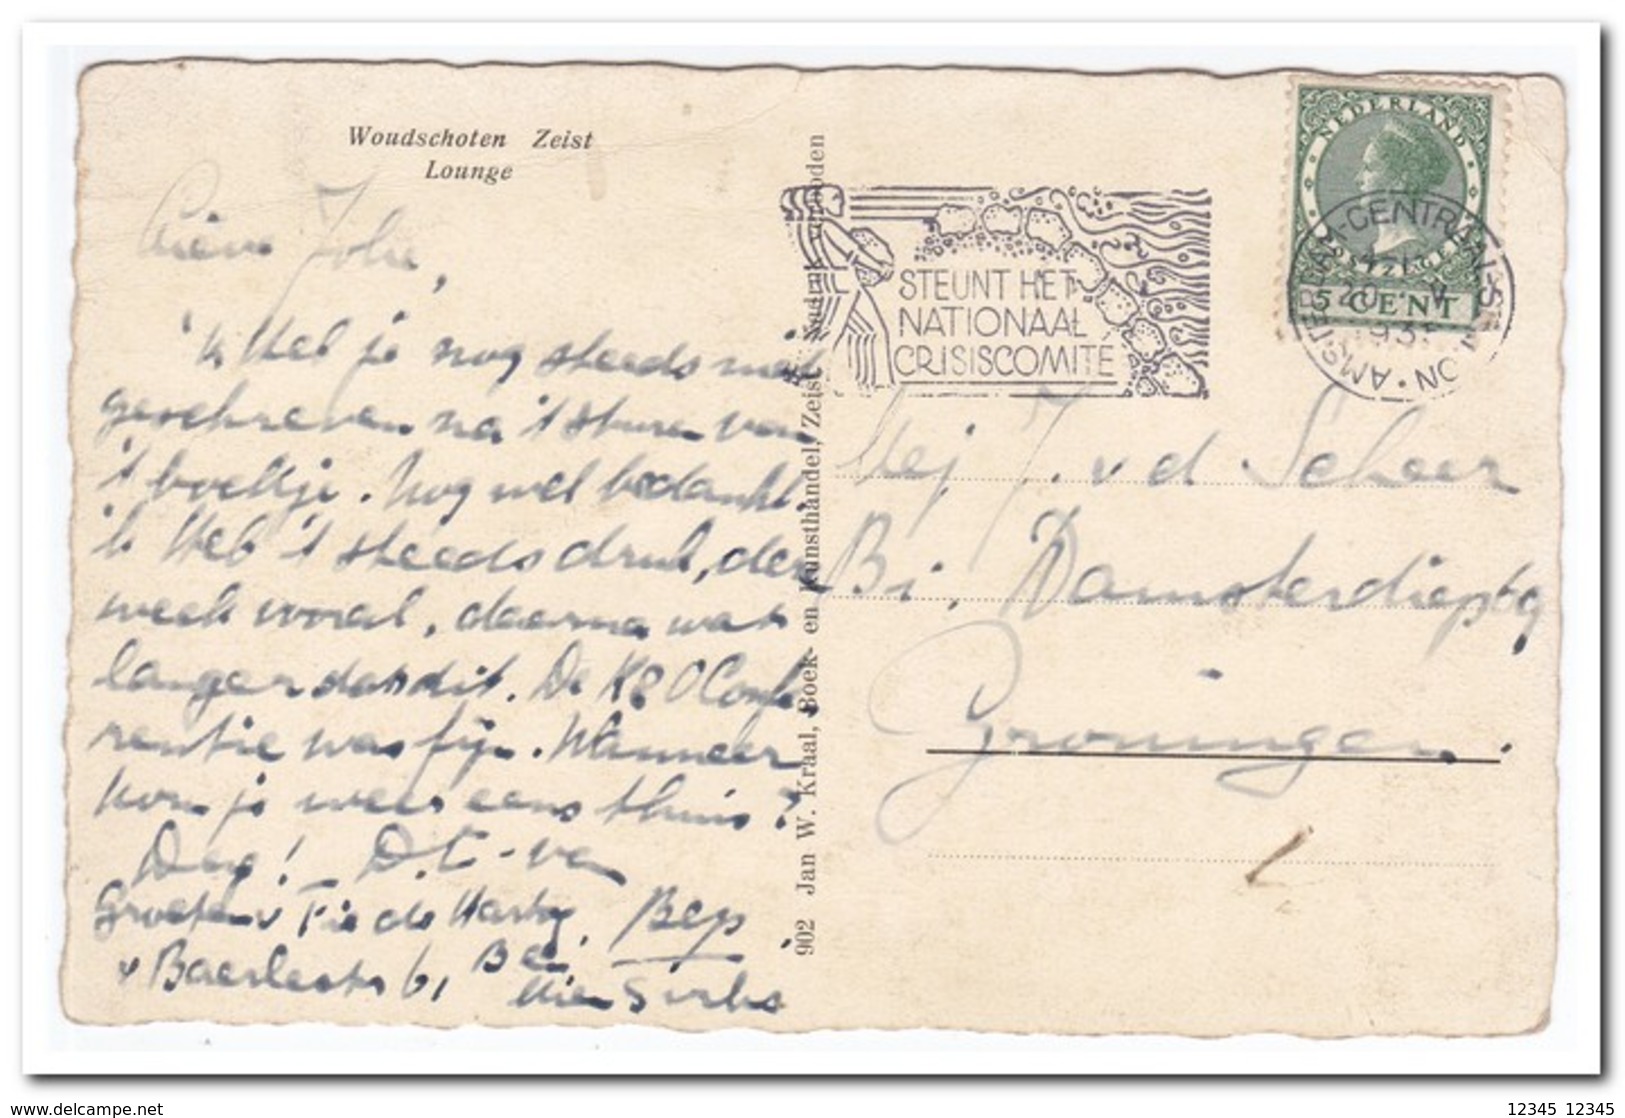 Woudschoten Zeist
Lounge
Lieve Joke,
'k Heb je nog steeds niet
geschreven na 't sturen van
't boekje. Nog wel bedankt.
'k Heb 't steeds druk, deze
week vooral, daarna wat
langer dan dit. De K & O Confe
rentie was fijn. Wanneer
kom je weer eens thuis?
Dag! van
Groeten v Fie de Hartog, Bep
v Baerlestr 61
Mien
902 Jan W. Kraal, Boek- en Kunsthandel, Zeist. Nadruk verboden
STEUNT HET
NATIONAAL
CRISISCOMITÉ
NEDERLAND
5 CENT
AMSTERDAM-CENTRAAL STATION
20 V
193
Mej J. v d Scheer
Damsterdiep 69
Groningen.
12345 12345